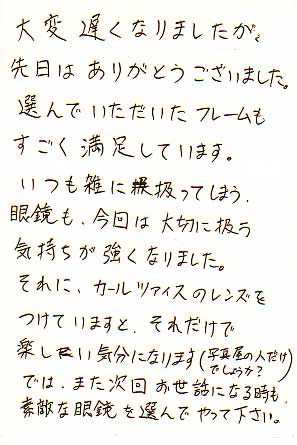 大変遅くなりましたが、
先日はありがとうございました。
選んでいただいたフレームも
すごく満足しています。
いつも雑に扱ってしまう、
眼鏡も、今回は大切に扱う
気持ちが強くなりました。
それに、カールツァイスのレンズを
つけていますと、それだけで
楽しい気分になります(写真屋の人だけ
でしょうか?)
では、また次回お世話になる時も、
素敵な眼鏡を選んでやって下さい。